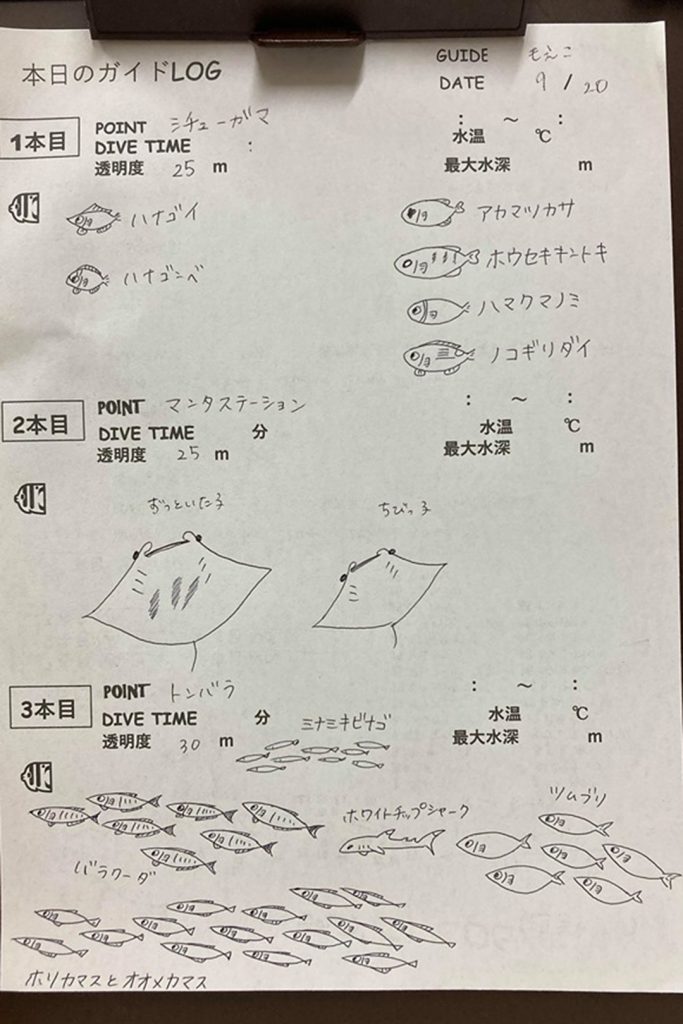 本日のガイドLOG
GUIDE もえこ
DATE 9 / 20
1本目
POINT シチューガマ
DIVE TIME :
透明度 25 m
: ～ :
水温 ℃
最大水深 m
ハナゴイ
ハナゴンベ
アカマツカサ
ホウセキキントキ
ハマクマノミ
ノコギリダイ
2本目
POINT マンタステーション
DIVE TIME 分
透明度 25 m
: ～ :
水温 ℃
最大水深 m
ずっといた子
ちびっ子
3本目
POINT トンバラ
DIVE TIME 分
透明度 30 m
: ～ :
水温 ℃
最大水深 m
ミナミキビナゴ
ホワイトチップシャーク
ツムブリ
バラクーダ
ホソカマスとオオメカマス